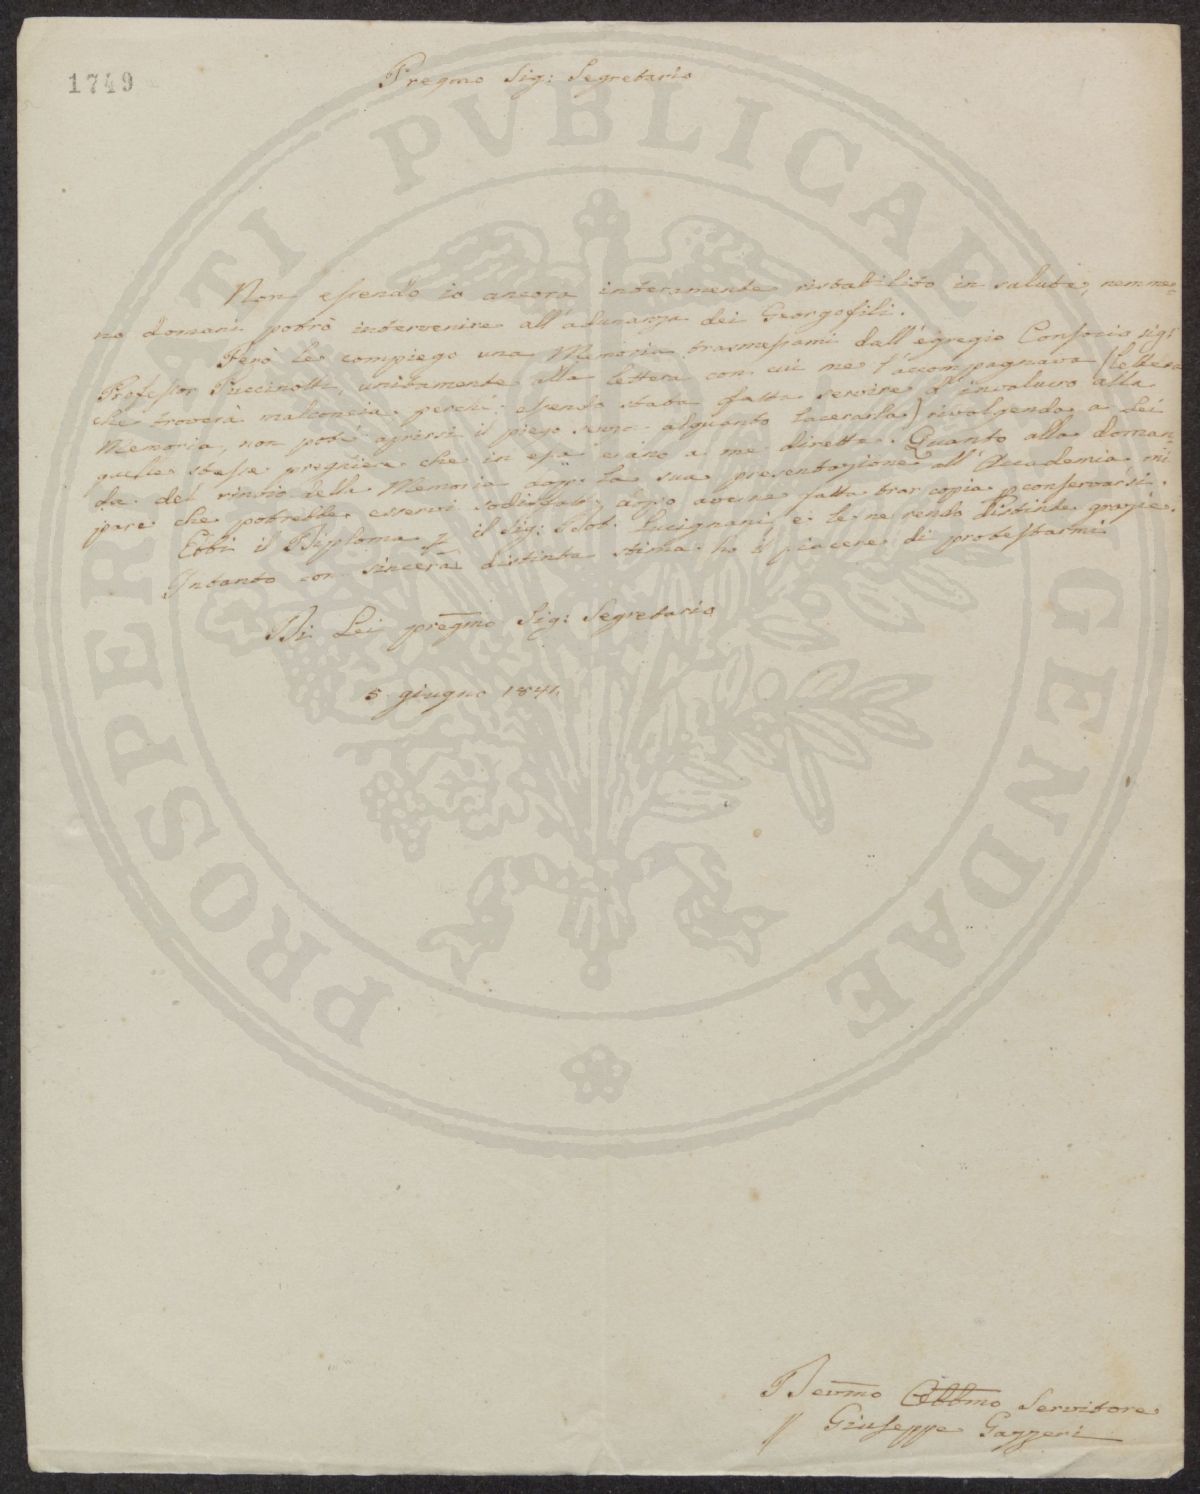 1749
Pregmo Sig: Segretario
Non essendo io ancora interamente ristabilito in salute, nemme-
no domani potrò intervenire all'adunanza dei Georgofili.
Però le compiego una Memoria trasmessami dall'egregio Consocio sig:
Professor Puccinotti, unitamente alla lettera con cui me l'accompagnava (lettera
che troverà malconcia, perchè essendo stata fatta servire d'involucro alla
Memoria, non potè aprirsi il piego senza alquanto lacerarla) rivolgendo a Lei
quelle stesse preghiere che in essa erano a me dirette. Quanto alla doman-
da del rinvio della Memoria dopo la sua presentazione all'Accademia mi
pare che potrebbe esservi sodisfatto, dopo averne fatta trar copia p conservarsi.
Ebbi il Diploma p il Sig: Dot. Lucignani, e le ne rendo distinte grazie.
Intanto con sincera distinta stima ho il piacere di protestarmi
Di Lei pregmo Sig: Segretario
5 giugno 1841.
Devmo Obbmo Servitore
Giuseppe Gazzeri
PROSPERITATI PVBLICAE AVGENDAE